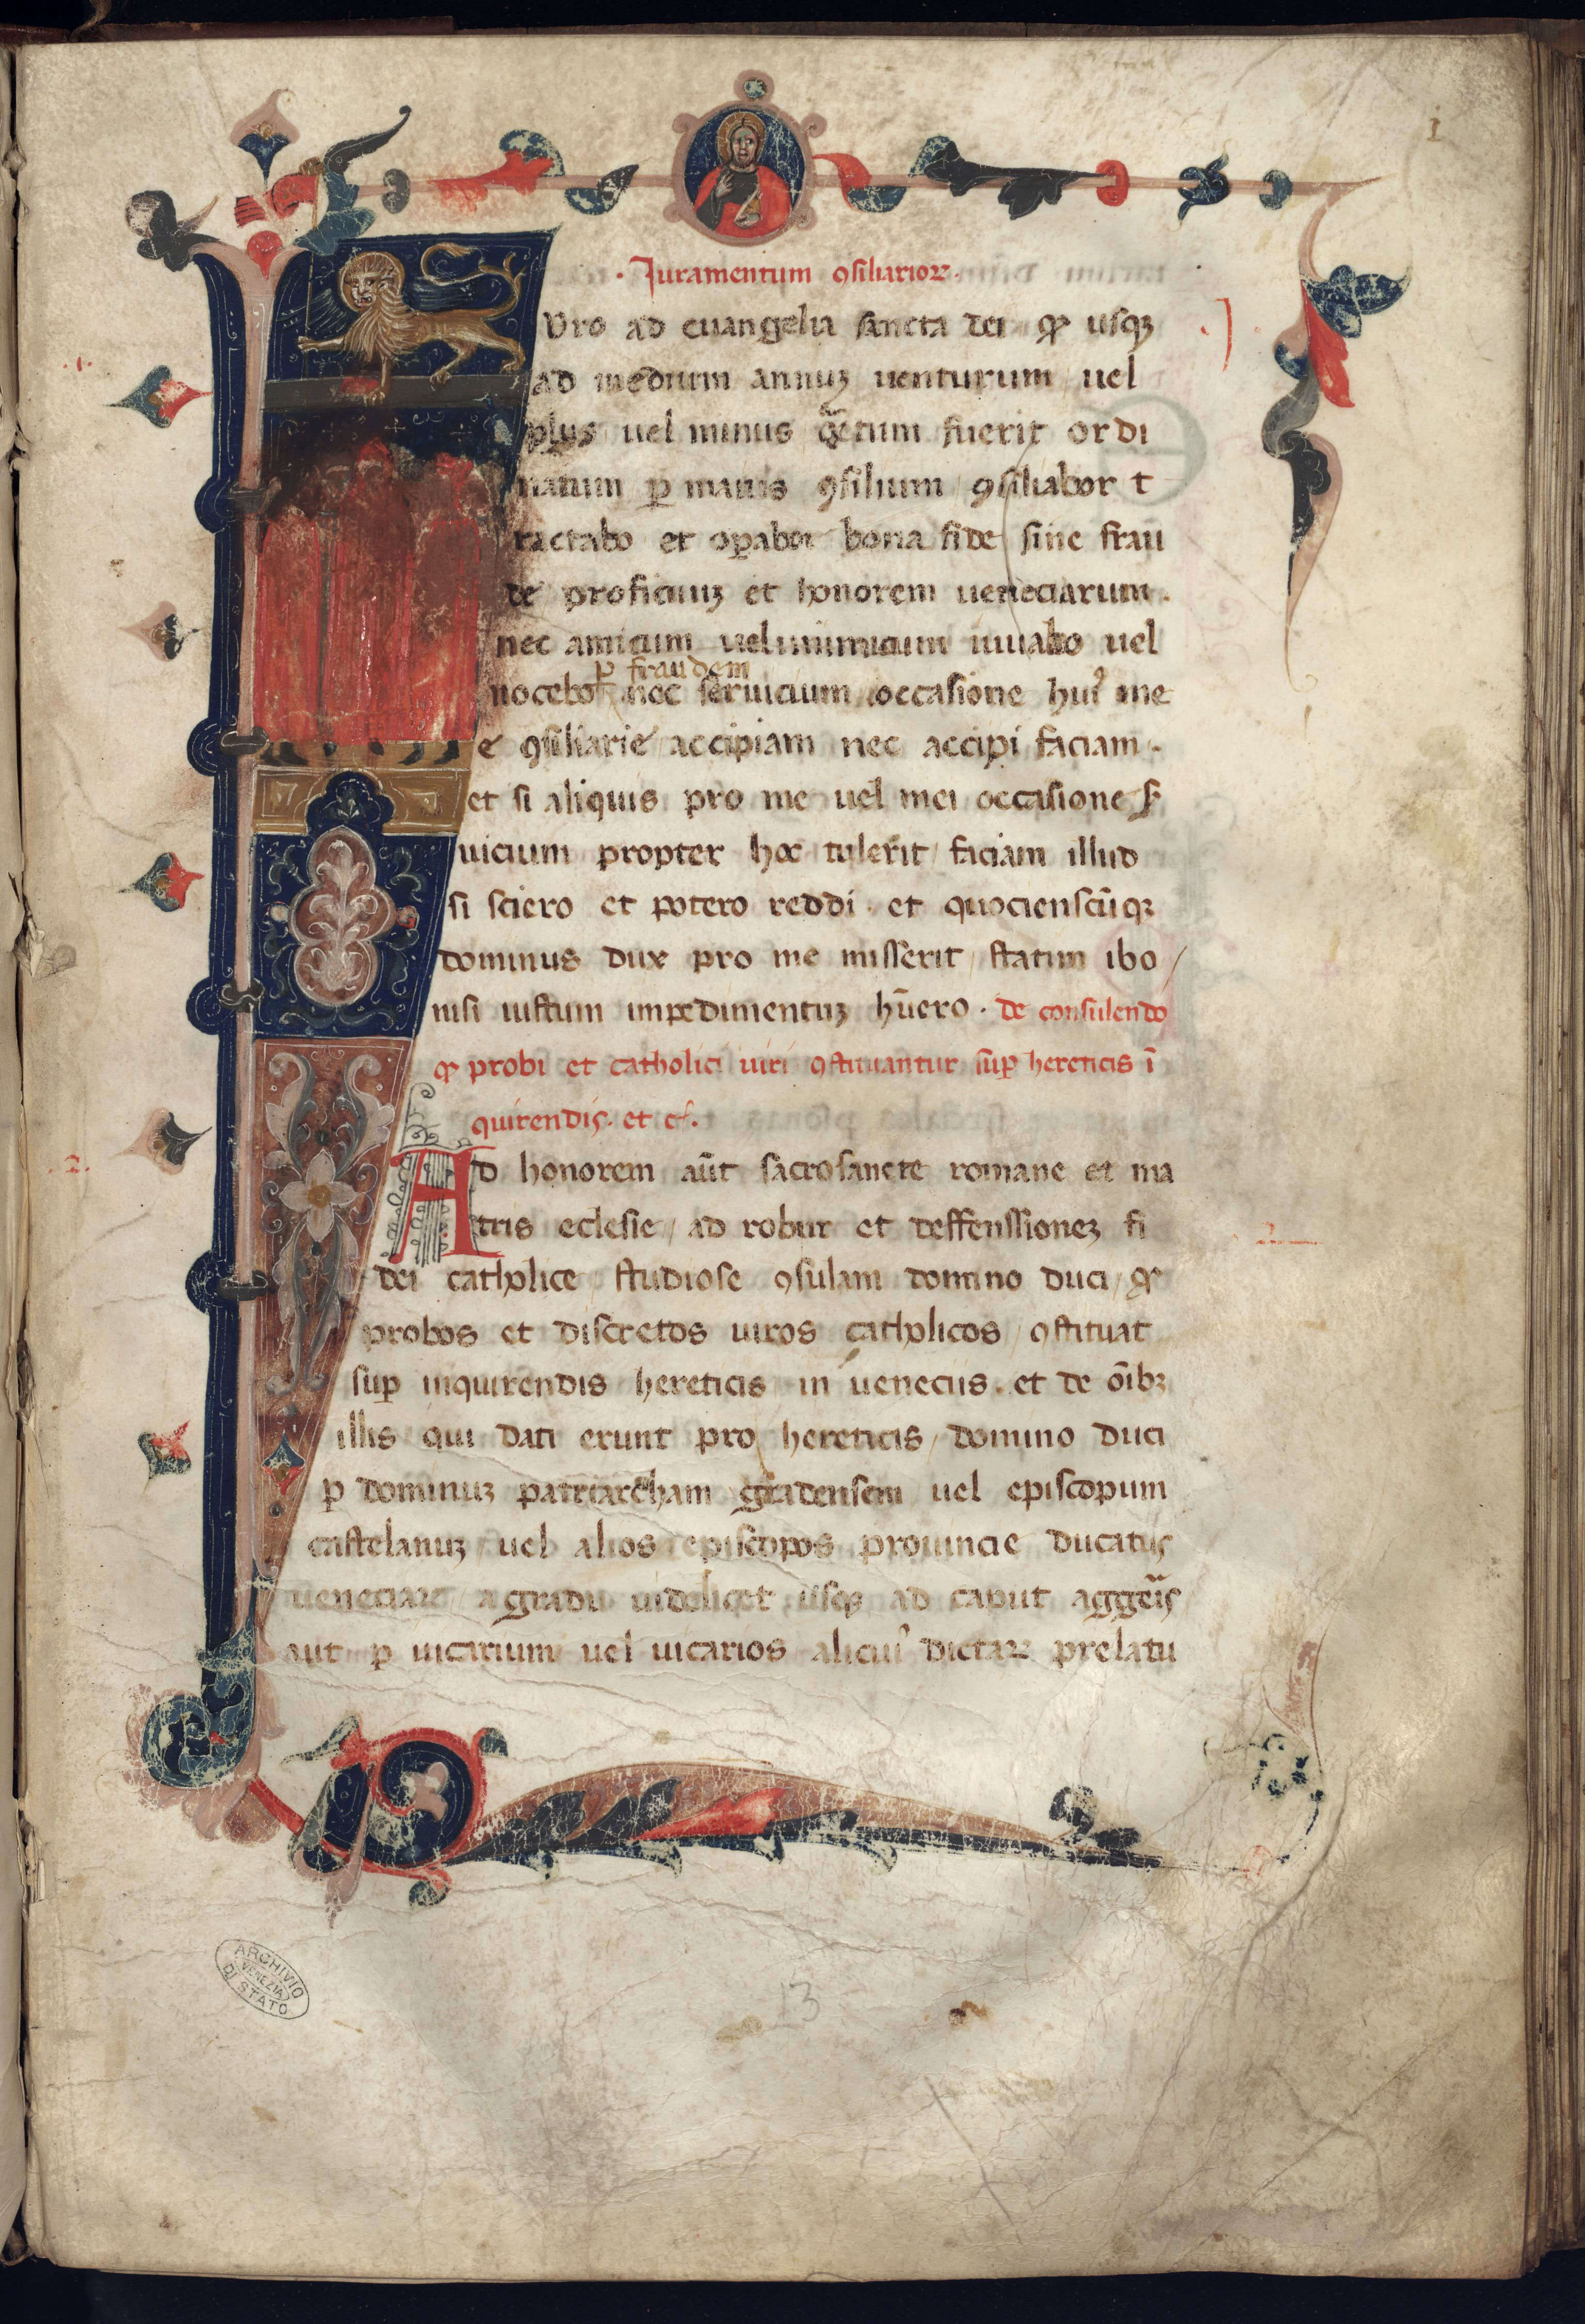 1
· Juramentum ꝯsiliarioꝝ·
Uro ad euangelia sancta dei ꝙ usqꝫ
.1.
ad medium annuꝫ uenturum uel
plus uel minus fuerit ordi
natum ꝑ maius ꝯsilium ꝯsiliabor t
ractabo et oꝑabor bona fide sine frau
de proficuuꝫ et honorem ueneciarum.
nec amicum uel inimicum iuuabo uel
ꝑ fraudem
nocebo nec seruicium occasione huiꝰ me
e ꝯsiliarie accipiam nec accipi faciam.
et si aliquis pro me uel mei occasione ẜ
uicium propter hoc tulerit / faciam illud
si sciero et potero reddi. et quocienscūqꝫ
dominus dux pro me misserit / statim ibo /
nisi iustum impedimentuꝫ hūero. de consulendo
ꝙ probi et catholici uiri ꝯstituantur suꝑ hereticis ī
quirendis. et cͭ.
.2.
Ad honorem aūt sacrosancte romane et ma
tris eclesie / ad robur et deffenssioneꝫ fi
2
dei catholice studiose ꝯsulam domino duci / ꝙ
probos et discretos uiros catholicos / ꝯstituat
suꝑ inquirendis hereticis in ueneciis. et de oībꝫ
illis qui dati erunt pro hereticis / domino duci
ꝑ dominuꝫ patriarcham gradensem uel episcopum
castelanuꝫ uel alios episcopos prouincie ducatus
ueneciaꝝ a gradu uidelicet usqꝫ ad caput aggeīs
aut ꝑ uicarium uel uicarios alicuiꝰ dictaꝝ prelatu
ARCHIVIO
VENEZIA
DI STATO
13